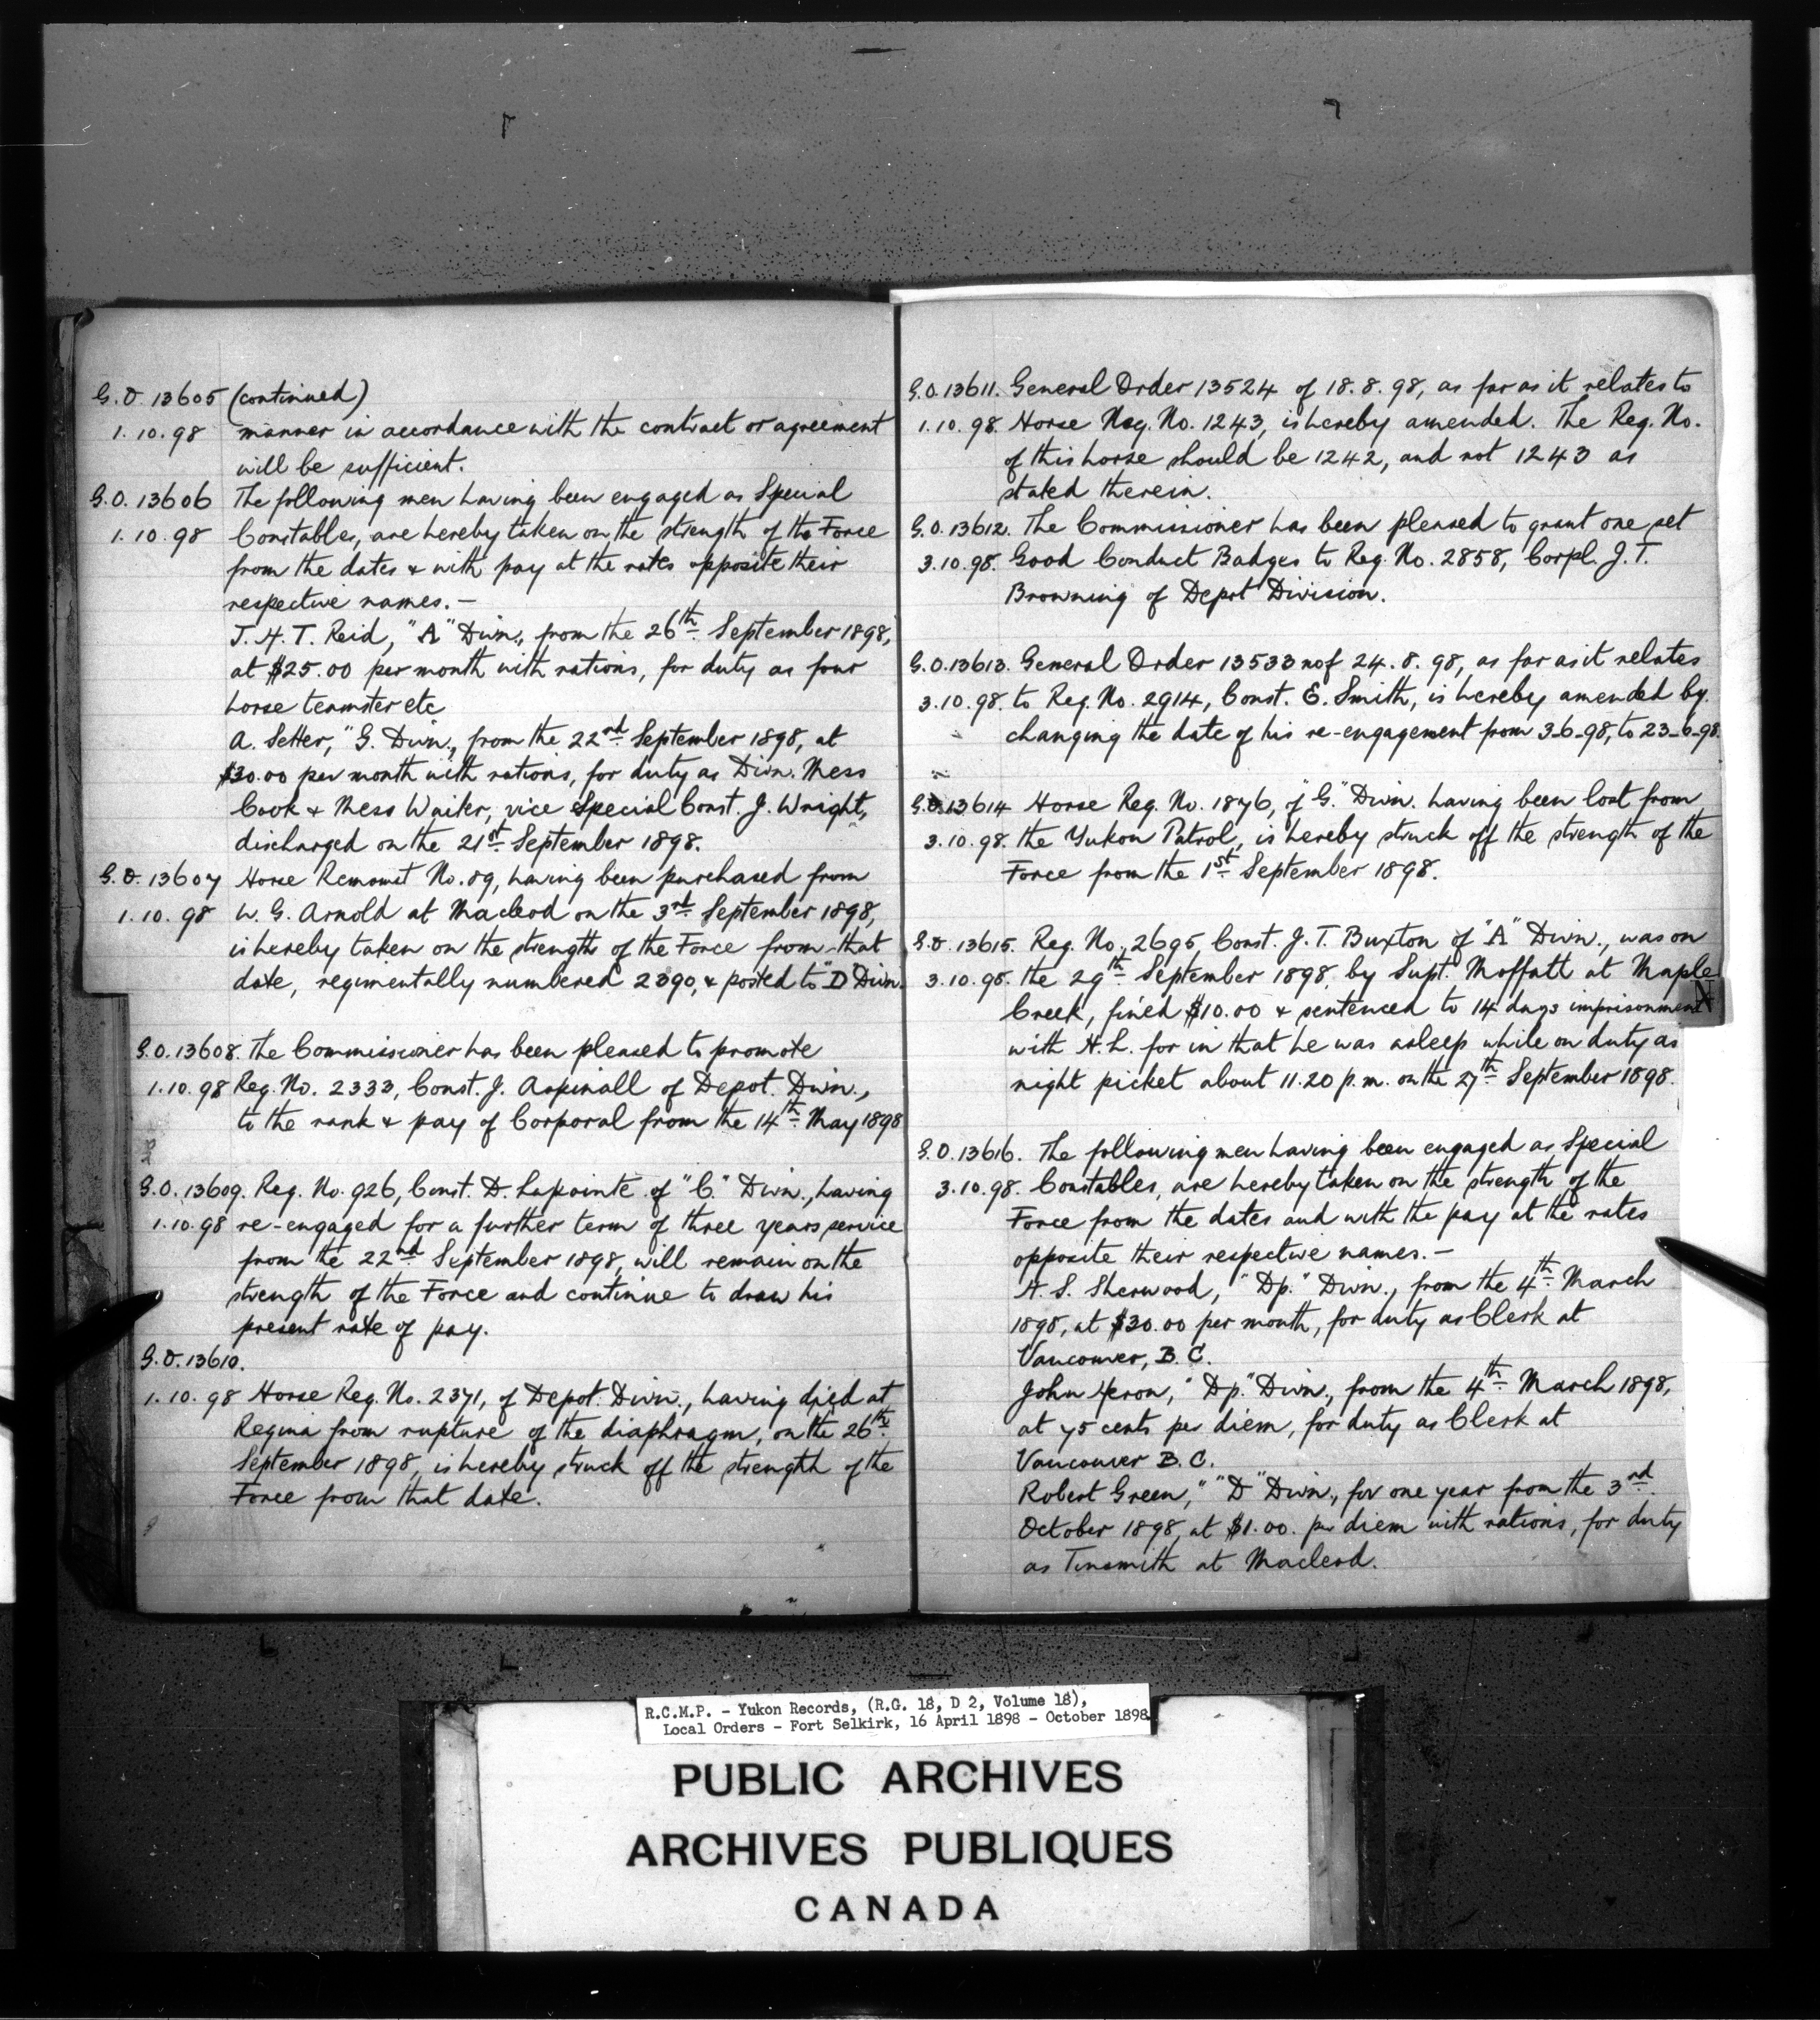 G.O. 13605 (continued)
1.10.98 manner in accordance with the contract or agreement
will be sufficient.
G.O. 13606 The following men having been engaged as Special
1.10.98 Constables, are hereby taken on the strength of the Force
from the dates & with pay at the rates opposite their
respective names.—
J.H.T. Reid, "A" Divn., from the 26th September 1898,
at $25.00 per month with rations, for duty as four
horse teamster etc
A. Setter, "G. Divn., from the 22nd September 1898, at
$30.00 per month with rations, for duty as Divn. Mess
Cook & Mess Waiter, vice Special Const. J. Wright,
discharged on the 21st September 1898.
G.O. 13607 Horse Remount No. 89, having been purchased from
1.10.98 W. G. Arnold at Macleod on the 3rd September 1898,
is hereby taken on the strength of the Force from that
date, regimentally numbered 2390, & posted to "D" Divn.
G.O. 13608. The Commissioner has been pleased to promote
1.10.98 Reg. No. 2333, Const. J. Aspinall of Depot. Divn.,
to the rank & pay of Corporal from the 14th May 1898
G.O. 13609. Reg. No. 926, Const. D. Lapointe of "C." Divn., having
1.10.98 re-engaged for a further term of three years service
from the 22nd September 1898, will remain on the
strength of the Force and continue to draw his
present rate of pay.
G.O. 13610.
1.10.98 Horse Reg. No. 2371, of Depot. Divn., having died at
Regina from rupture of the diaphragm, on the 26th
September 1898, is hereby struck off the strength of the
Force from that date.
G.O. 13611. General Order 13524 of 18.8.98, as far as it relates to
1.10.98. Horse Reg. No. 1243, is hereby amended. The Reg. No.
of this horse should be 1242, and not 1243 as
stated therein.
G.O. 13612. The Commissioner has been pleased to grant one set
3.10.98. Good Conduct Badges to Reg. No. 2858, Corpl. J. T.
Browning of Depot Division.
G.O. 13613. General Order 13533 of 24.8.98, as far as it relates
3.10.98. to Reg. No. 2914, Const. E. Smith, is hereby amended by
changing the date of his re-engagement from 3-6-98, to 23-6-98.
G.O. 13614 Horse Reg. No. 1876, of "G." Divn. having been lost from
3.10.98. the Yukon Patrol, is hereby struck off the strength of the
Force from the 1st September 1898.
G.O. 13615. Reg. No. 2695, Const. J. T. Buxton of "A" Divn., was on
3.10.98. the 29th September 1898, by Supt. Moffatt at Maple
Creek, fined $10.00 & sentenced to 14 days imprisonment
with H.L. for in that he was asleep while on duty as
night picket about 11.20 p.m. on the 27th September 1898.
G.O. 13616. The following men having been engaged as Special
3.10.98. Constables, are hereby taken on the strength of the
Force from the dates and with the pay at the rates
opposite their respective names.—
H. S. Sherwood, "Dp." Divn., from the 4th March
1898, at $30.00 per month, for duty as Clerk at
Vancouver, B.C.
John Heron, "Dp." Divn., from the 4th March 1898,
at 75 cents per diem, for duty as Clerk at
Vancouver B.C.
Robert Green, "D" Divn., for one year from the 3rd
October 1898, at $1.00. per diem with rations, for duty
as Tinsmith at Macleod.
N
R.C.M.P. - Yukon Records, (R.G. 18, D 2, Volume 18),
Local Orders - Fort Selkirk, 16 April 1898 - October 1898
PUBLIC ARCHIVES
ARCHIVES PUBLIQUES
CANADA